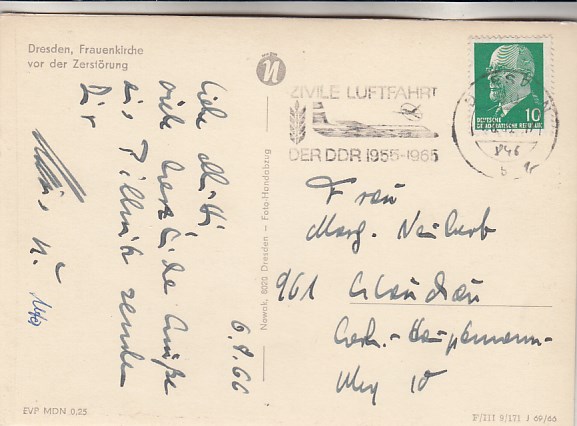 Dresden, Frauenkirche
vor der Zerstörung
Liebe Mutti,
viele herzliche Grüße
aus Pillnitz senden
Dir
u.
6.8.66
Nowak, 8020 Dresden – Foto-Handabzug
ZIVILE LUFTFAHRT
DER DDR 1955-1965
DRESDEN
846
10
DEUTSCHE
DEMOKRATISCHE REPUBLIK
Frau
Marg. Neubert
961 Glauchau
Gerh.-Hauptmann-
Weg 10
EVP MDN 0,25
F/III 9/171 J 69/66